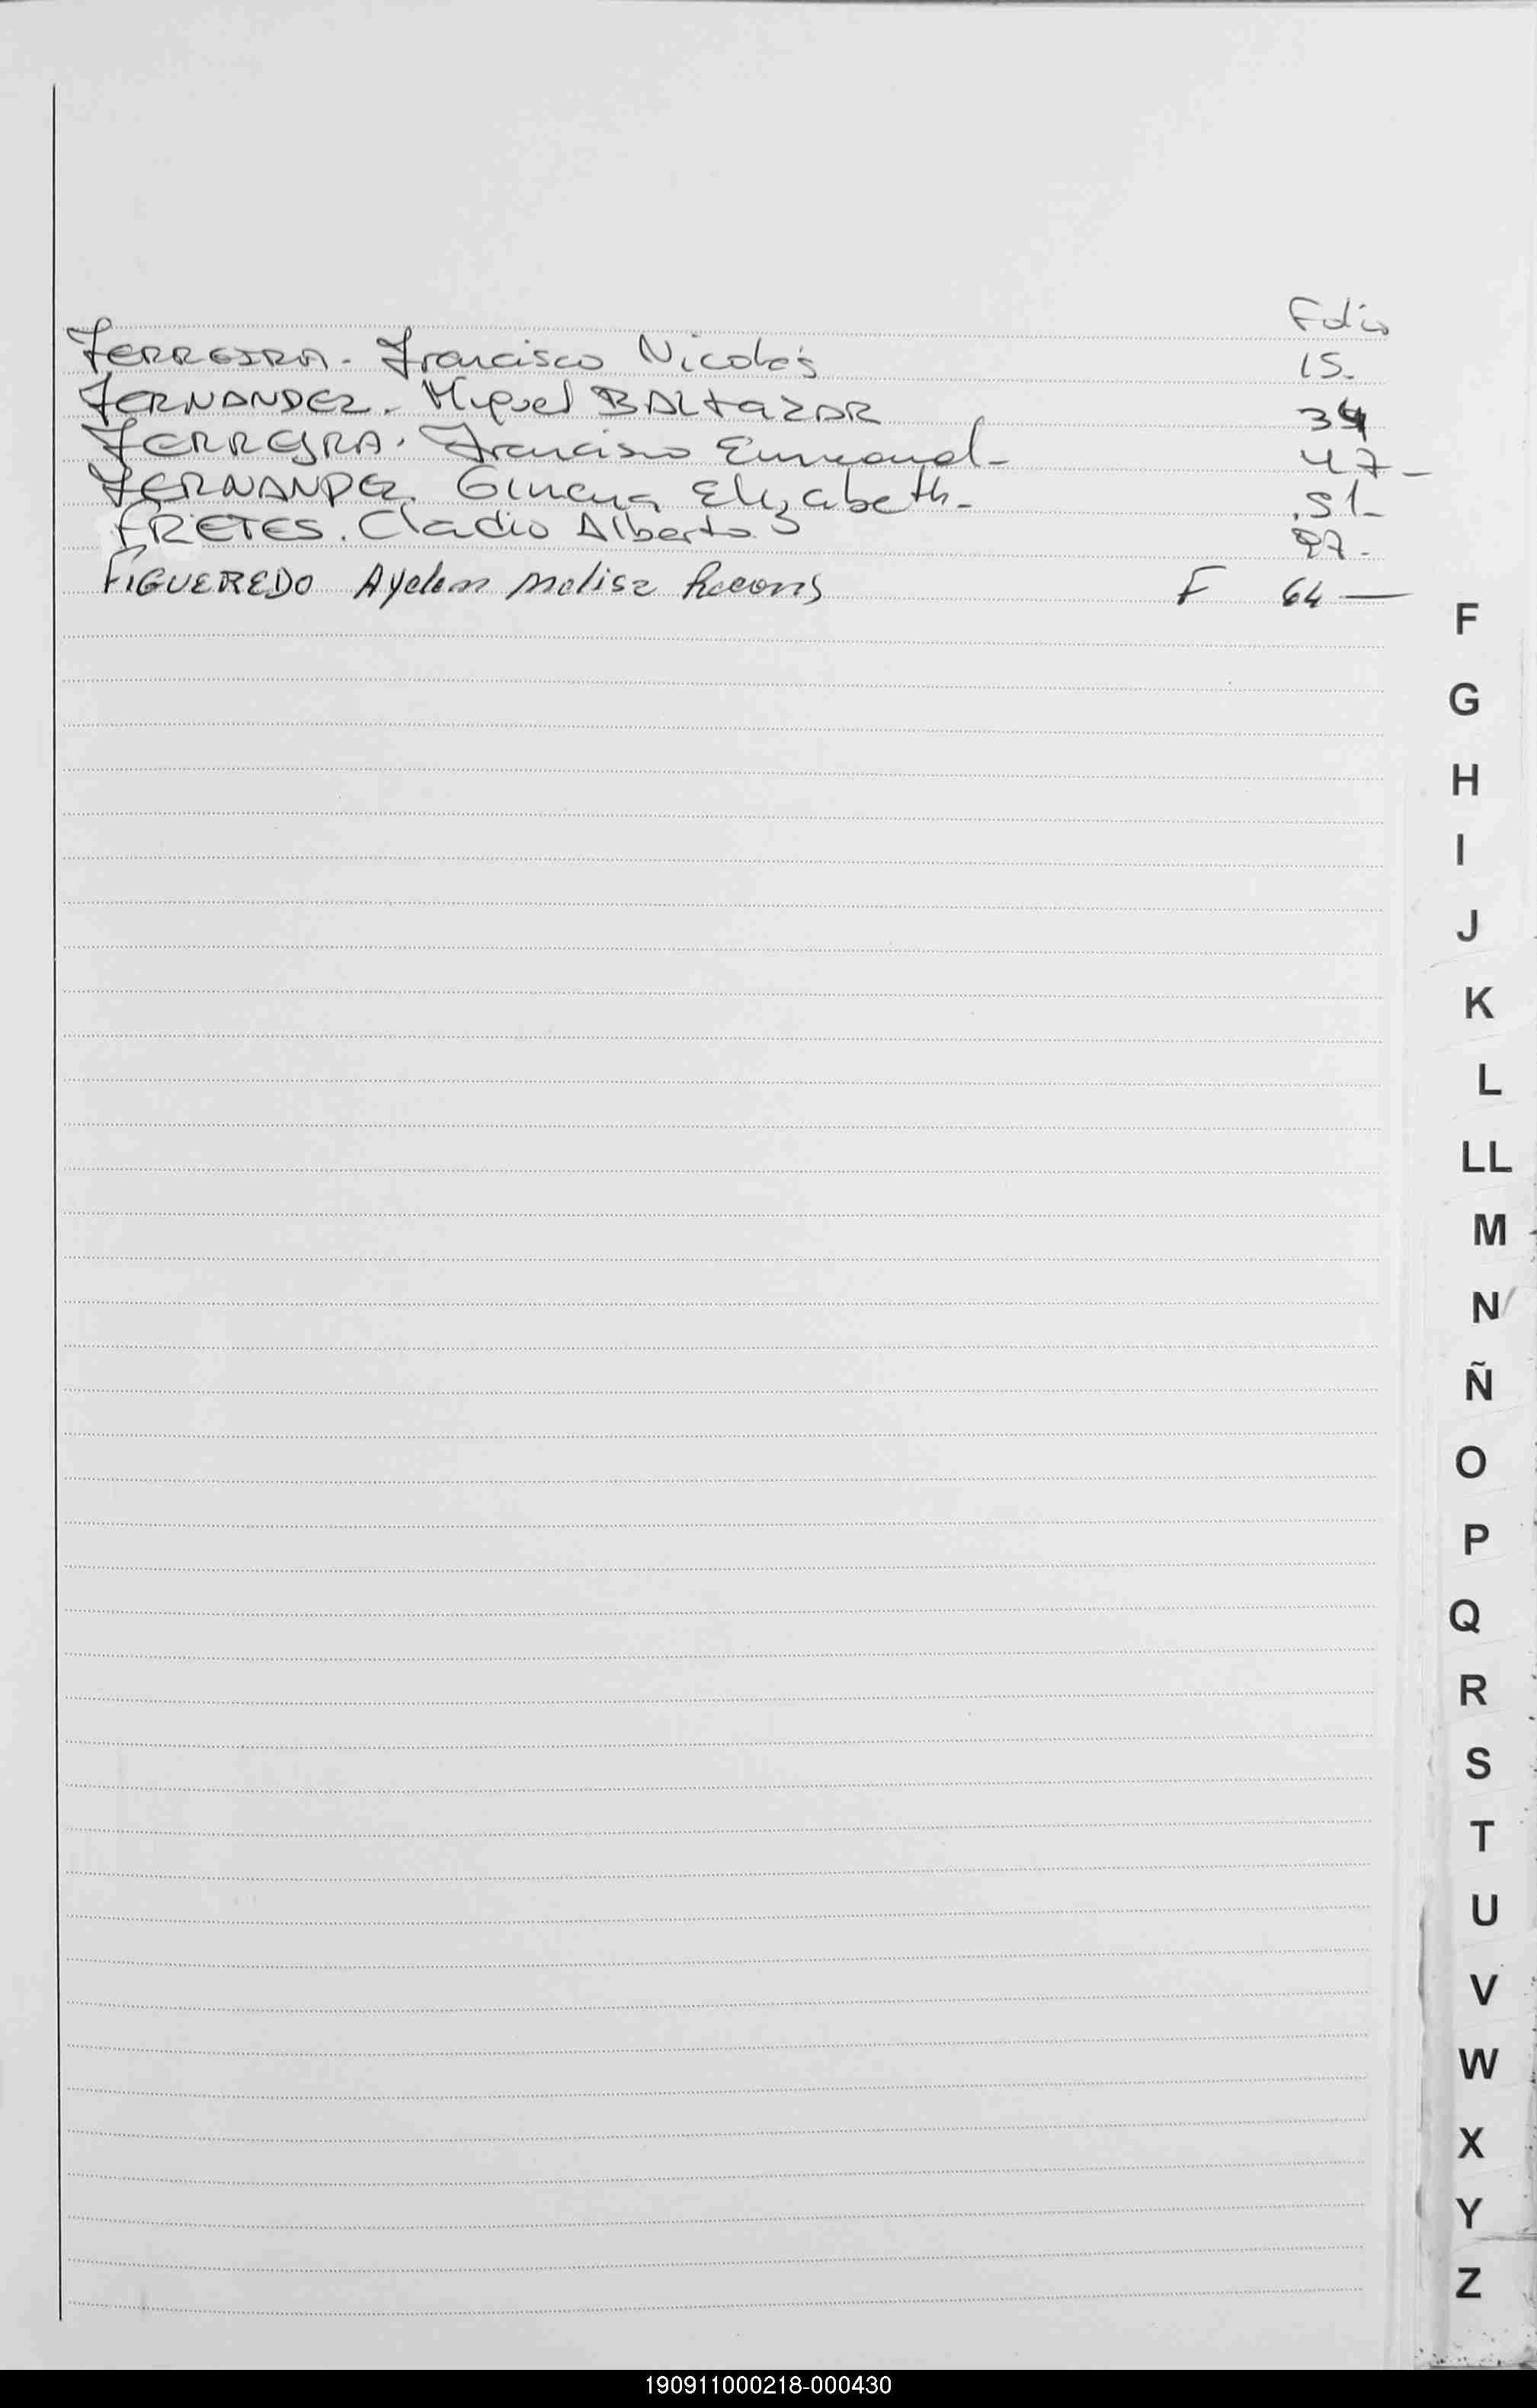 Folio
FERREIRA - Francisco Nicolás 15.
FERNANDEZ. Miguel BALtaZAR 34
FERREYRA. Francisco Emmanuel - 47 -
FERNANDEZ. Gimena Elizabeth - 51 -
FRETES. Cladio Alberto
FIGUEREDO Ayelen Melisa F 64 —
F
G
H
I
J
K
L
LL
M
N
Ñ
O
P
Q
R
S
T
U
V
W
X
Y
Z
190911000218-000430